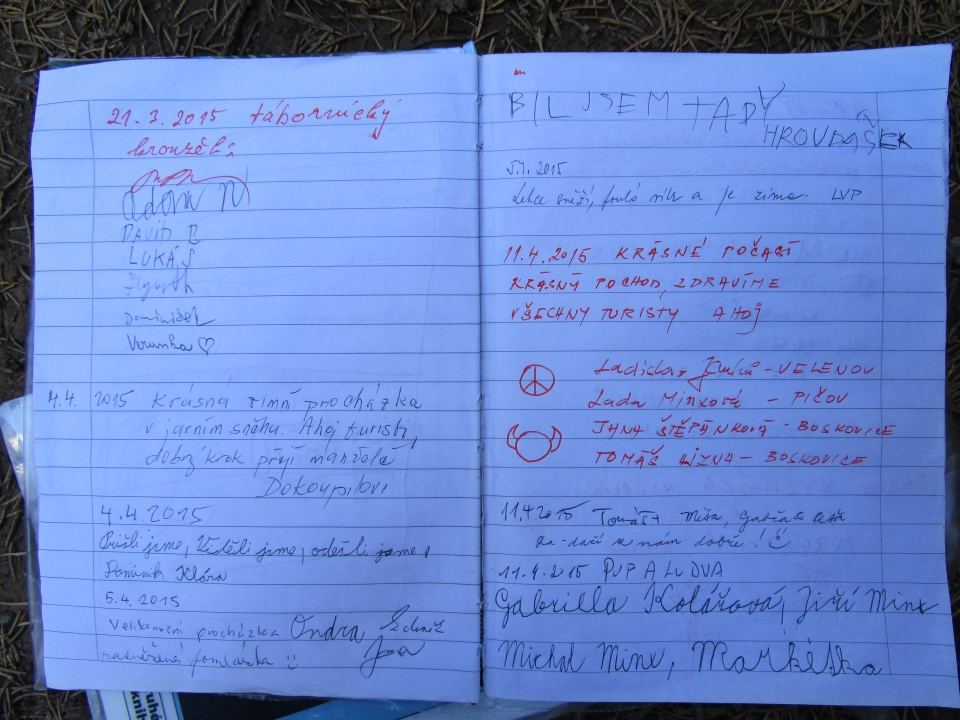 21.3.2015 tábornický
kroužek:
Adam N
DAVID
LUKÁŠ
Dominiček
Verunka
4.4. 2015 Krásná zimní procházka
v jarním sněhu. Ahoj turisti,
dobrý krok přejí manželé
Dokoupilovi
4.4.2015
Přišli jsme, Viděli jsme, odešli jsme,
Dominik Klára
5.4.2015
Velikonoční procházka Ondra Zdeněk
BIL JSEM TADY
HROUDAŠEK
2015
Lehce sněží, a je zima. LVP
11.4.2015 KRÁSNÉ POČASÍ
KRÁSNÝ POCHOD, ZDRAVÍME
VŠECHNY TURISTY AHOJ
Ladislav - VELENOV
Lada Minxová - PIČOV
JANA ŠTĚPÁNKOVÁ - BOSKOVICE
TOMÁŠ - BOSKOVICE
11.4.2015 Tomáš + Míša,
se nám dobře!
11.4.2015 PUPALUDVA
Gabriella Kolářová, Jiří Minx
Michal Minx, Markétka